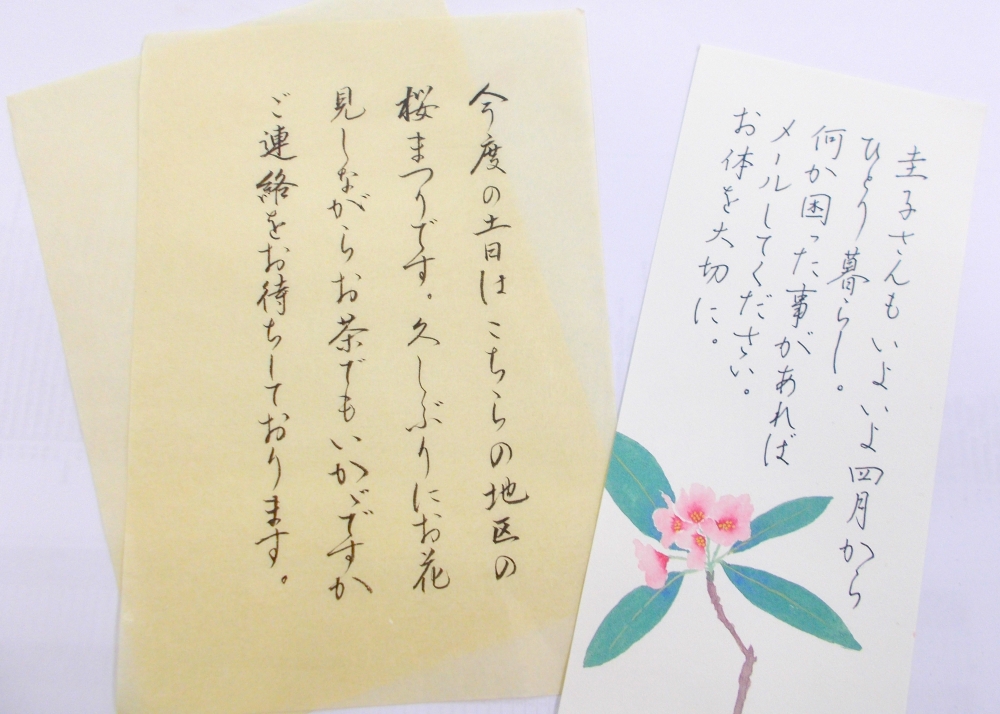 今度の土日はこちらの地区の
桜まつりです。久しぶりにお花
見しながらお茶でもいかゞですか
ご連絡をお待ちしております。
圭子さんもいよいよ四月から
ひとり暮らし。
何か困った事があれば
メールしてくださいい。
お体を大切に。